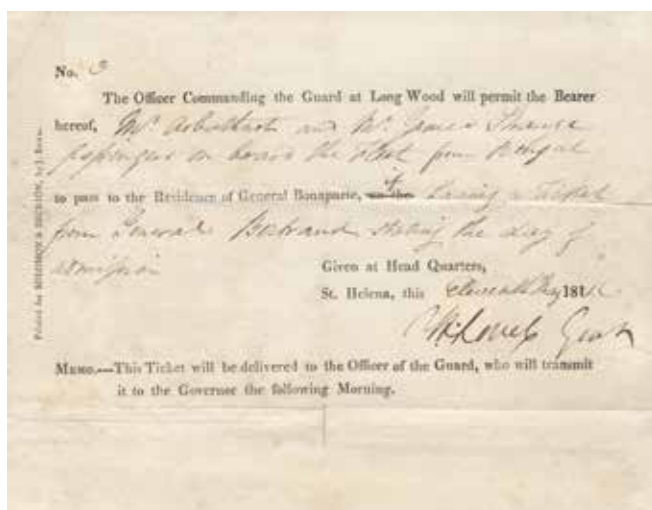 No. 3
The Officer Commanding the Guard at Long Wood will permit the Bearer
hereof, Mr. Arbuthnot and Mr. James
passengers on board the from Bengal
to pass to the Residence of General Bonaparte, on the if having a Ticket
from General Bertrand stating the day of
admission
Given at Head Quarters,
St. Helena, this 181
MEMO.—This Ticket will be delivered to the Officer of the Guard, who will transmit
it to the Governor the following Morning.
Printed for SOLOMON & DICKSON, by J. BOYD.